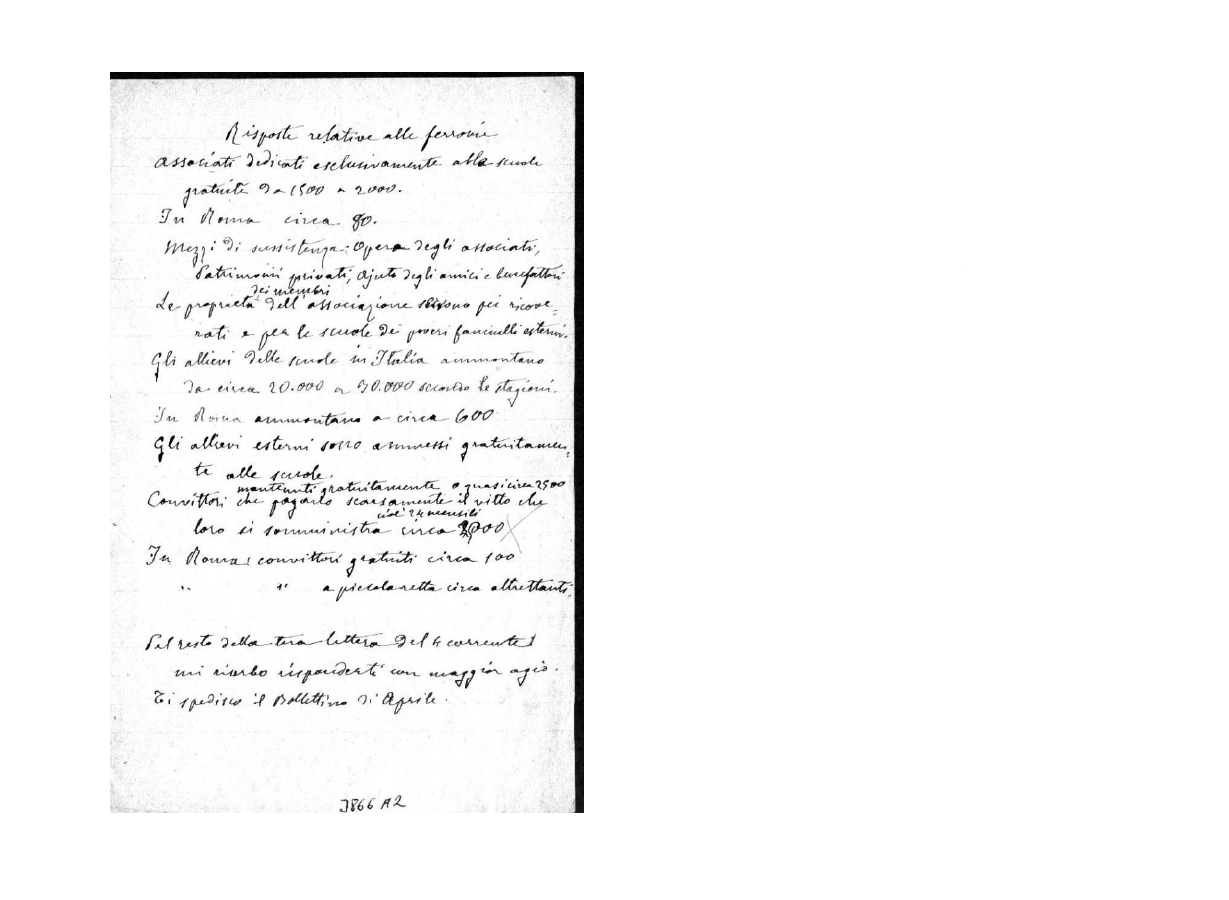 Risposte relative alle ferrovie
Associati dedicati esclusivamente alle scuole
gratuite da 1500 a 2000.
In Roma circa 80.
Mezzi di sussistenza: Opera degli associati,
Patrimonii privati, ajuto degli amici e benefattori
dei membri
Le proprietà dell'associazione sono pei ricove=
rati e per le scuole dei poveri fanciulli esterni.
Gli allievi delle scuole in Italia ammontano
da circa 20.000 a 30.000 secondo le stagioni.
In Roma ammontano a circa 600
Gli allievi esterni sono ammessi gratuitamen=
te alle scuole.
mantenuti gratuitamente o quasi circa 2500
Convittori che pagano scarsamente il vitto che
cioè 24 mensili
loro si somministra circa 000
In Roma: convittori gratuiti circa 100
" " a piccola retta circa altrettanti.
Pel resto della tua lettera del 4 corrente
mi riserbo risponderti con maggior agio.
Ti spedisco il Bollettino di Aprile.
3866 A2